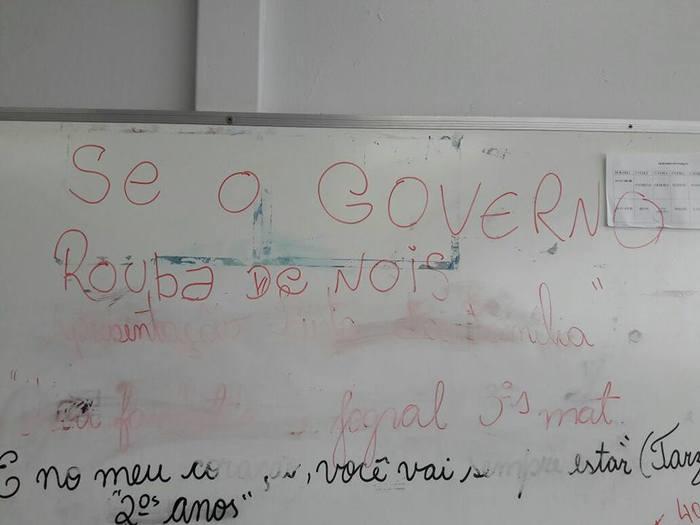 Se o GOVERNO
Rouba DE NOIS
apresentação família"
jogral 3ºs mat.
E no meu co , você vai sempre estar" (Tarz
"2ºs anos"